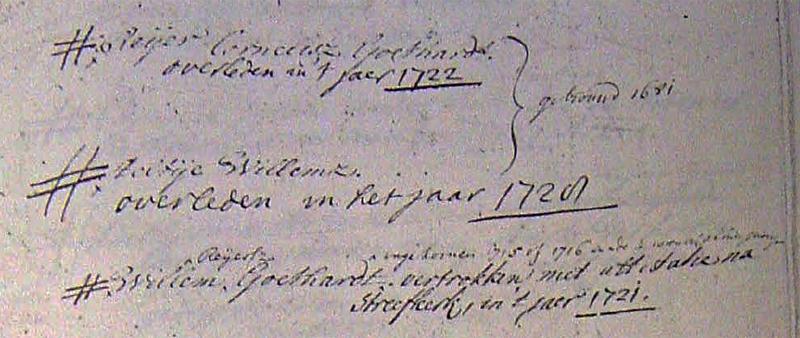 #. Reijer Cornelisz Goethardt.
overleden in 't jaer 1722
getrouwd 1681
#. Willemz.
overleden in het jaar 1728
Reijersz ingekomen 1715 of 1716
#. Willem Goethardt. vertrokken met attestatie na
Streefkerk, in 't jaer 1721.